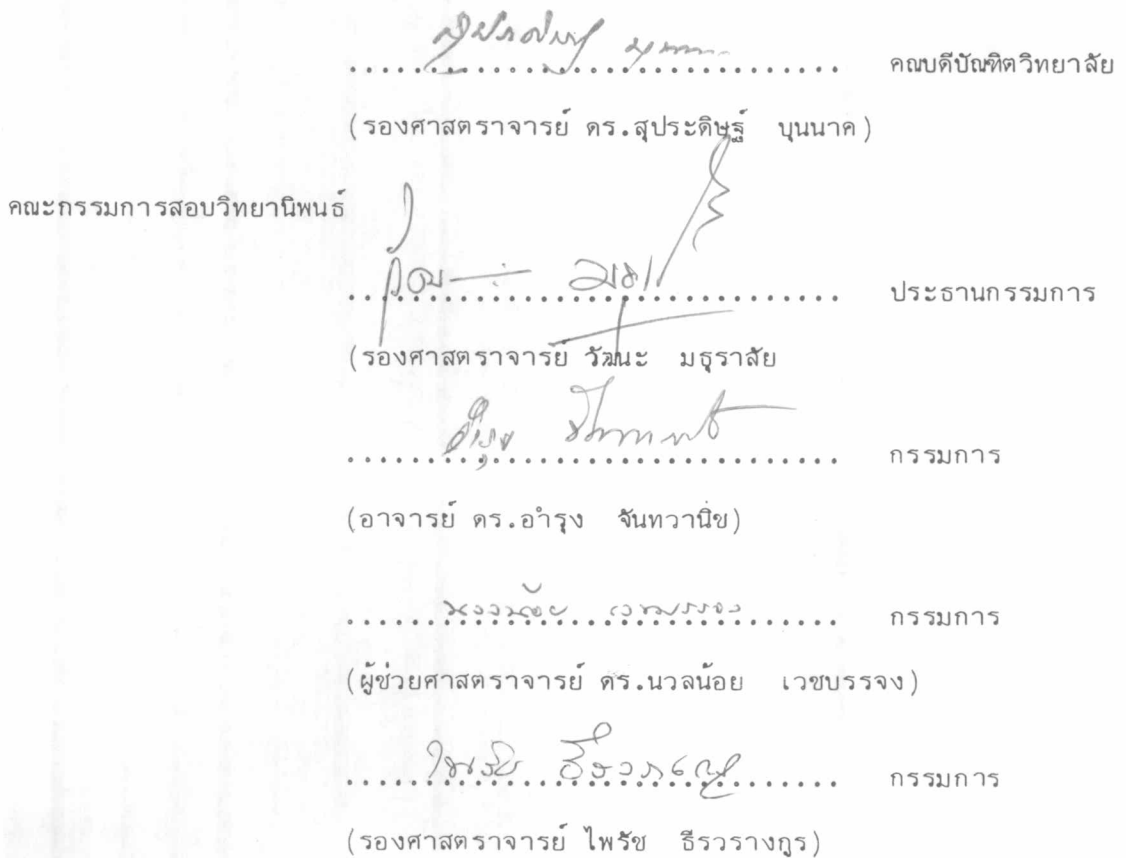 ................................. คณบดีบัณฑิตวิทยาลัย
(รองศาสตราจารย์ ดร.สุประดิษฐ์ บุนนาค)
คณะกรรมการสอบวิทยานิพนธ์
................................. ประธานกรรมการ
(รองศาสตราจารย์ วัฒนะ มธุราสัย
................................. กรรมการ
(อาจารย์ ดร.อำรุง จันทวานิช)
นวลน้อย เวชบรรจง กรรมการ
(ผู้ช่วยศาสตราจารย์ ดร.นวลน้อย เวชบรรจง)
................................. กรรมการ
(รองศาสตราจารย์ ไพรัช ธีรวรางกูร)